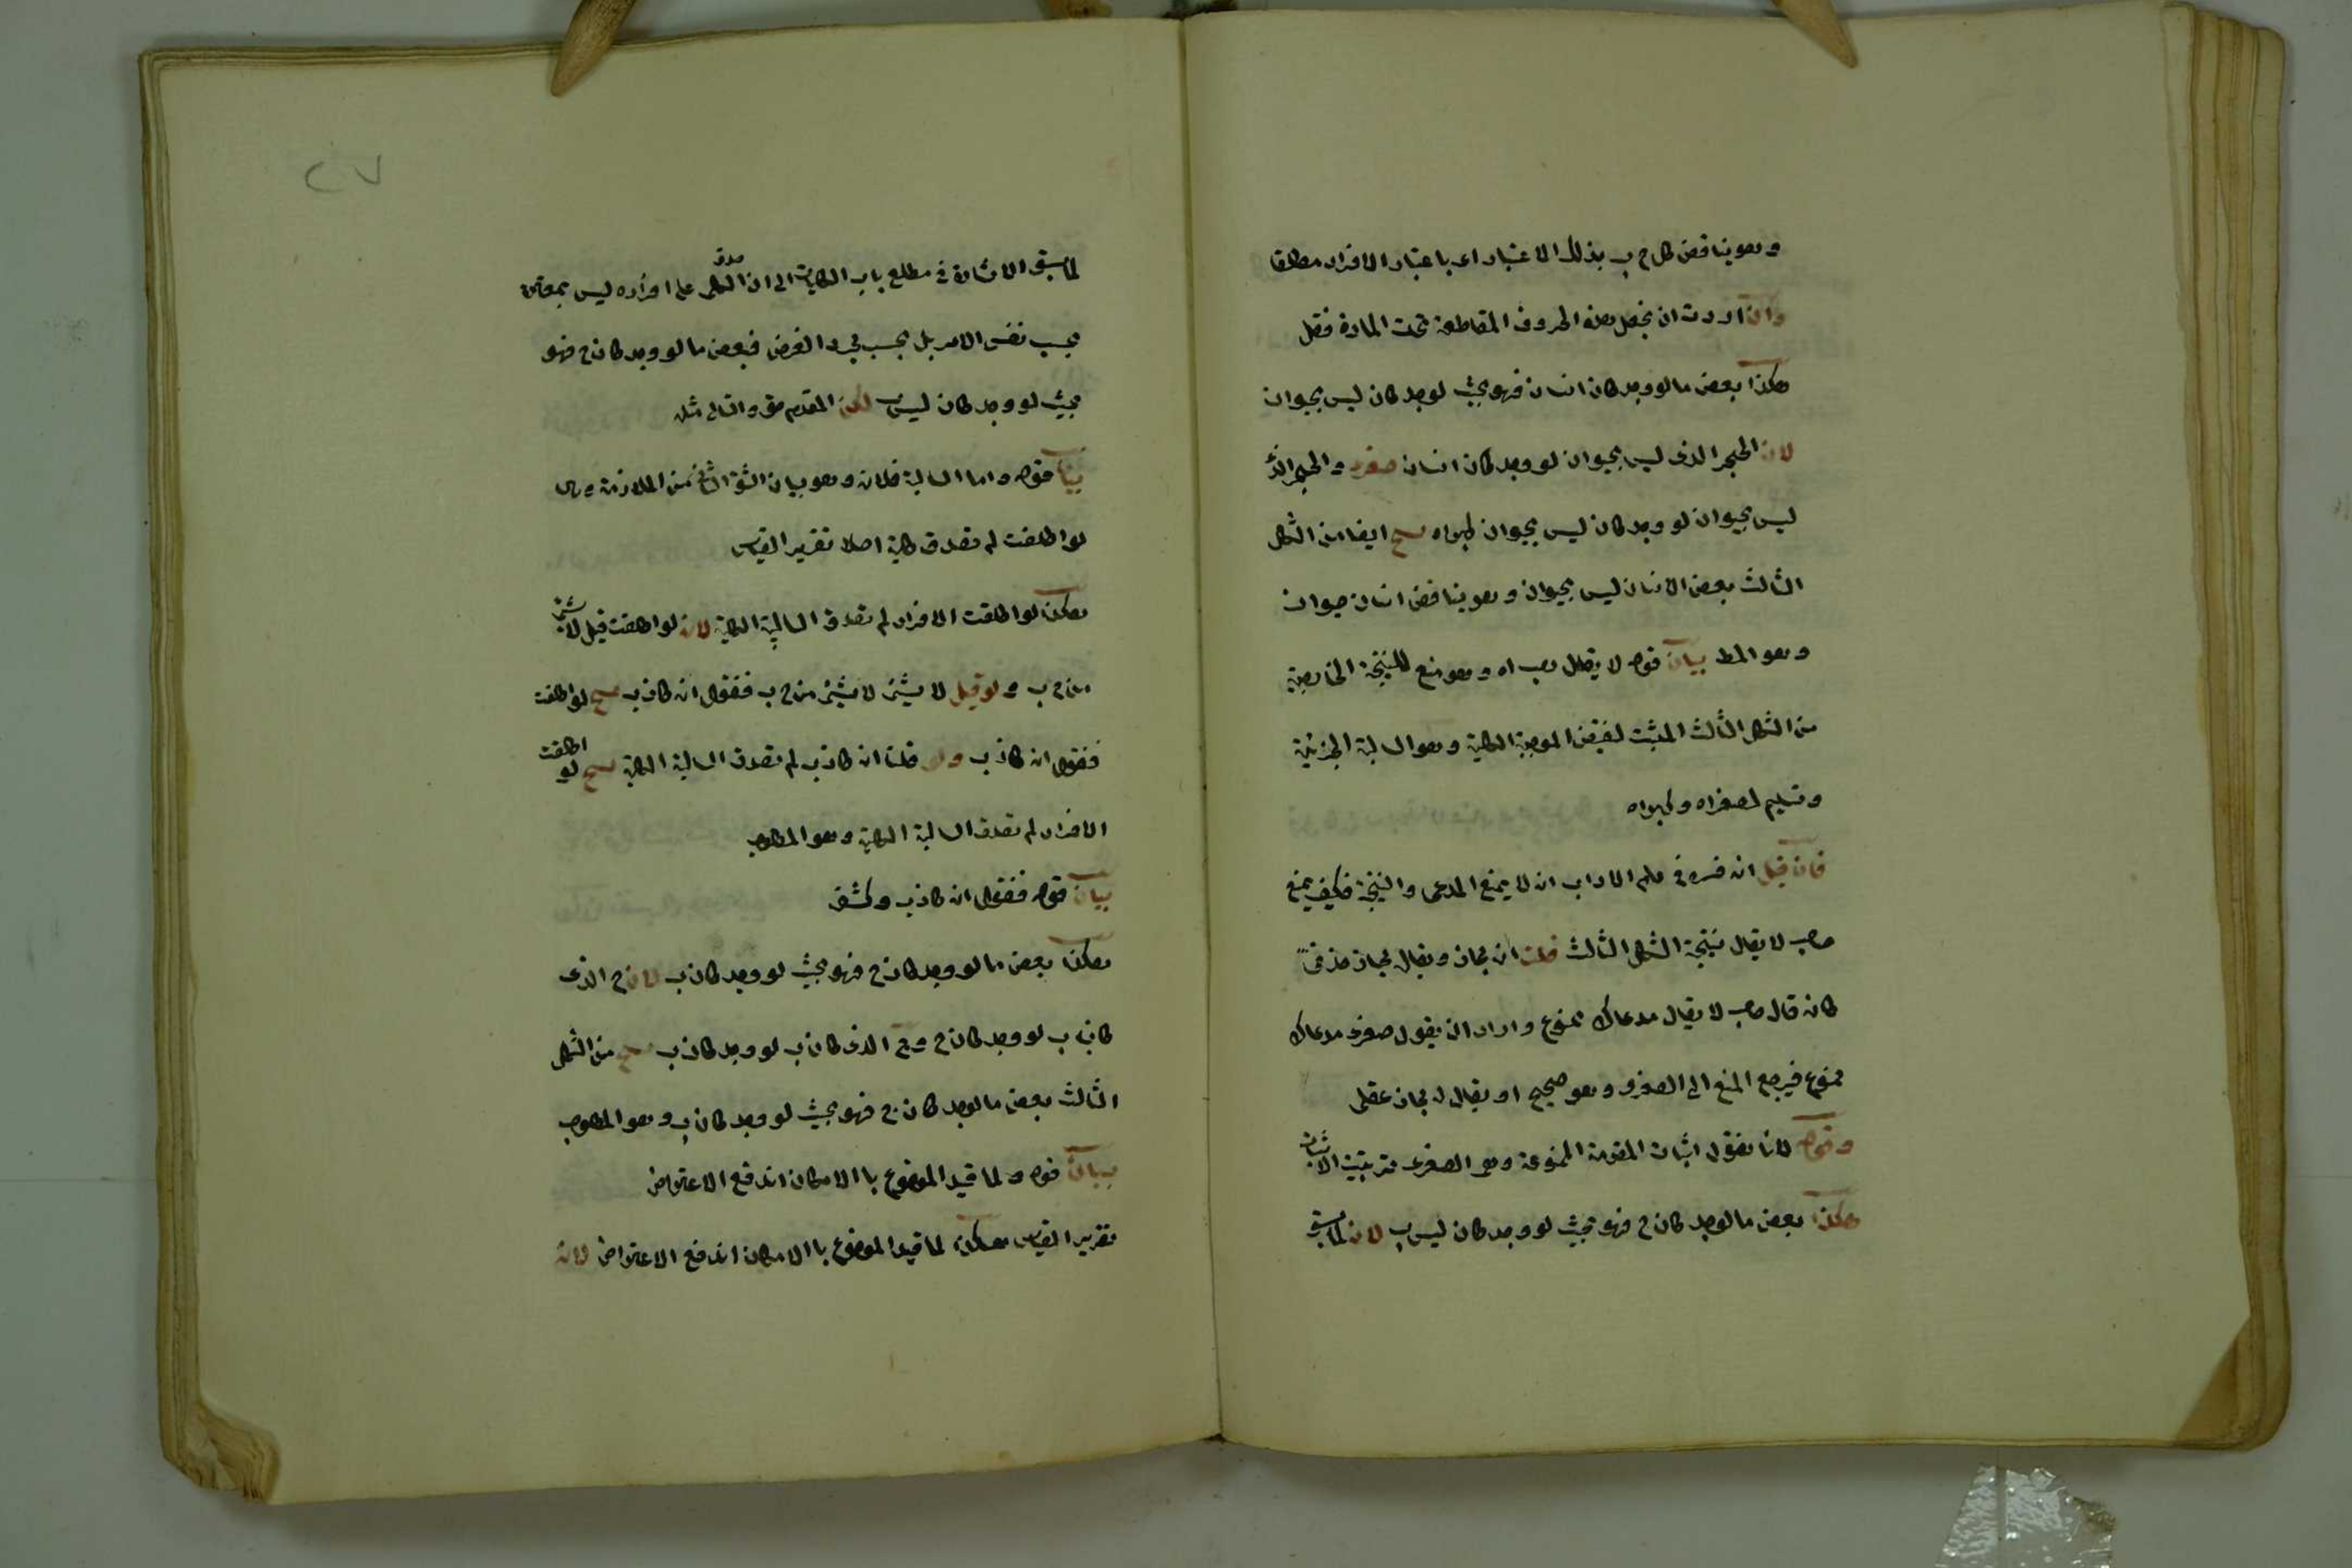 وهو يناقض كل ج ب بذلك الاعتبار اعني باعتبار الافراد مطلقا
وان اردت ان تجعل هذه الحروف المقاطعة تحت المادة فقل
هكذا بعض ما لو وجد كان انسان فهو بحيث لو وجد كان ليس بحيوان
لان الحجر الذى ليس بحيوان لو وجد كان انسان صغرى والحجر الذى
ليس بحيوان لو وجد كان ليس بحيوان كبراه ينتج ايضا من الشكل
الثالث بعض الانسان ليس بحيوان وهو يناقض انسان حيوان
وهو المط بيان قوله لا يقال هب اه وهو منع للنتيجة الخارجية
من الشكل الثالث المثبت لنقيض الموجبة الكلية وهو السالبة الجزئية
وتسليم لصغراه وكبراه
فان قيل انه فسره فى علم الاداب انه لا يمنع المدعى والنتيجة فكيف يمنع
هب لا يقال نتيجة الشكل الثالث قلت انه مجاز ويقال مجاز حذفى
كانه قال هب لا يقال مدعاك ممنوع واراد ان يقول صغرى مدعاك
ممنوع فيرجع المنع الى الصغرى وهو صحيح او يقال له مجاز عقلى
وقوله لانا نقول اثبات المقدمة الممنوعة وهو الصغرى الاثبات
هكذا بعض ما لو وجد كان ج فهو بحيث لو وجد كان ليس ب لان لما سبق
٢٧
لما سبق الاشارة فى مطلع باب الكليات الى ان صدق الكلى على افراده ليس بمعتبر
بحسب نفس الامر بل بحسب مجرد الفرض فبعض ما لو وجد كان ج فهو
بحيث لو وجد كان ليس ب لكن المقدم حق والتالى مثله
بيان قوله واما السالبة فلانه وهو بيان الشق الثانى من الملازمة وهى
لو اطلقت لم تصدق كلية اصلا تقرير القياس
هكذا لو اطلقت الافراد لم تصدق السالبة الكلية لانه لو اطلقت قيل لا شئ
من ج ب ولو قيل لا شئ من ج ب فنقول انه كاذب ينتج لو اطلقت
فنقول انه كاذب ولو قلنا انه كاذب لم تصدق السالبة الكلية ينتج لو اطلقت
الافراد لم تصدق السالبة الكلية وهو المطلوب
بيان قوله فنقول انه كاذب
هكذا بعض ما لو وجد كان ج فهو بحيث لو وجد كان ب لان ج الذى
كان ب لو وجد كان ج وج الذى كان ب لو وجد كان ب ينتج من الشكل
الثالث بعض ما لو وجد كان ج فهو بحيث لو وجد كان ب وهو المطلوب
بيان قوله ولما قيد الموضوع با الامكان اندفع الاعتراض
تقرير القياس هكذا لما قيد الموضوع با الامكان اندفع الاعتراض لانه